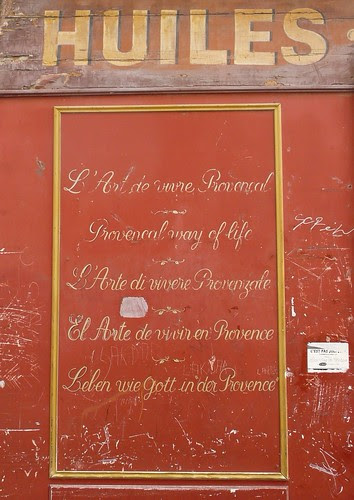 HUILES
L'Art de vivre Provençal
Provencal way of life
L'Arte di vivere Provenzale
El Arte de vivir en Provence
Leben wie Gott in der Provence
C'EST PAS